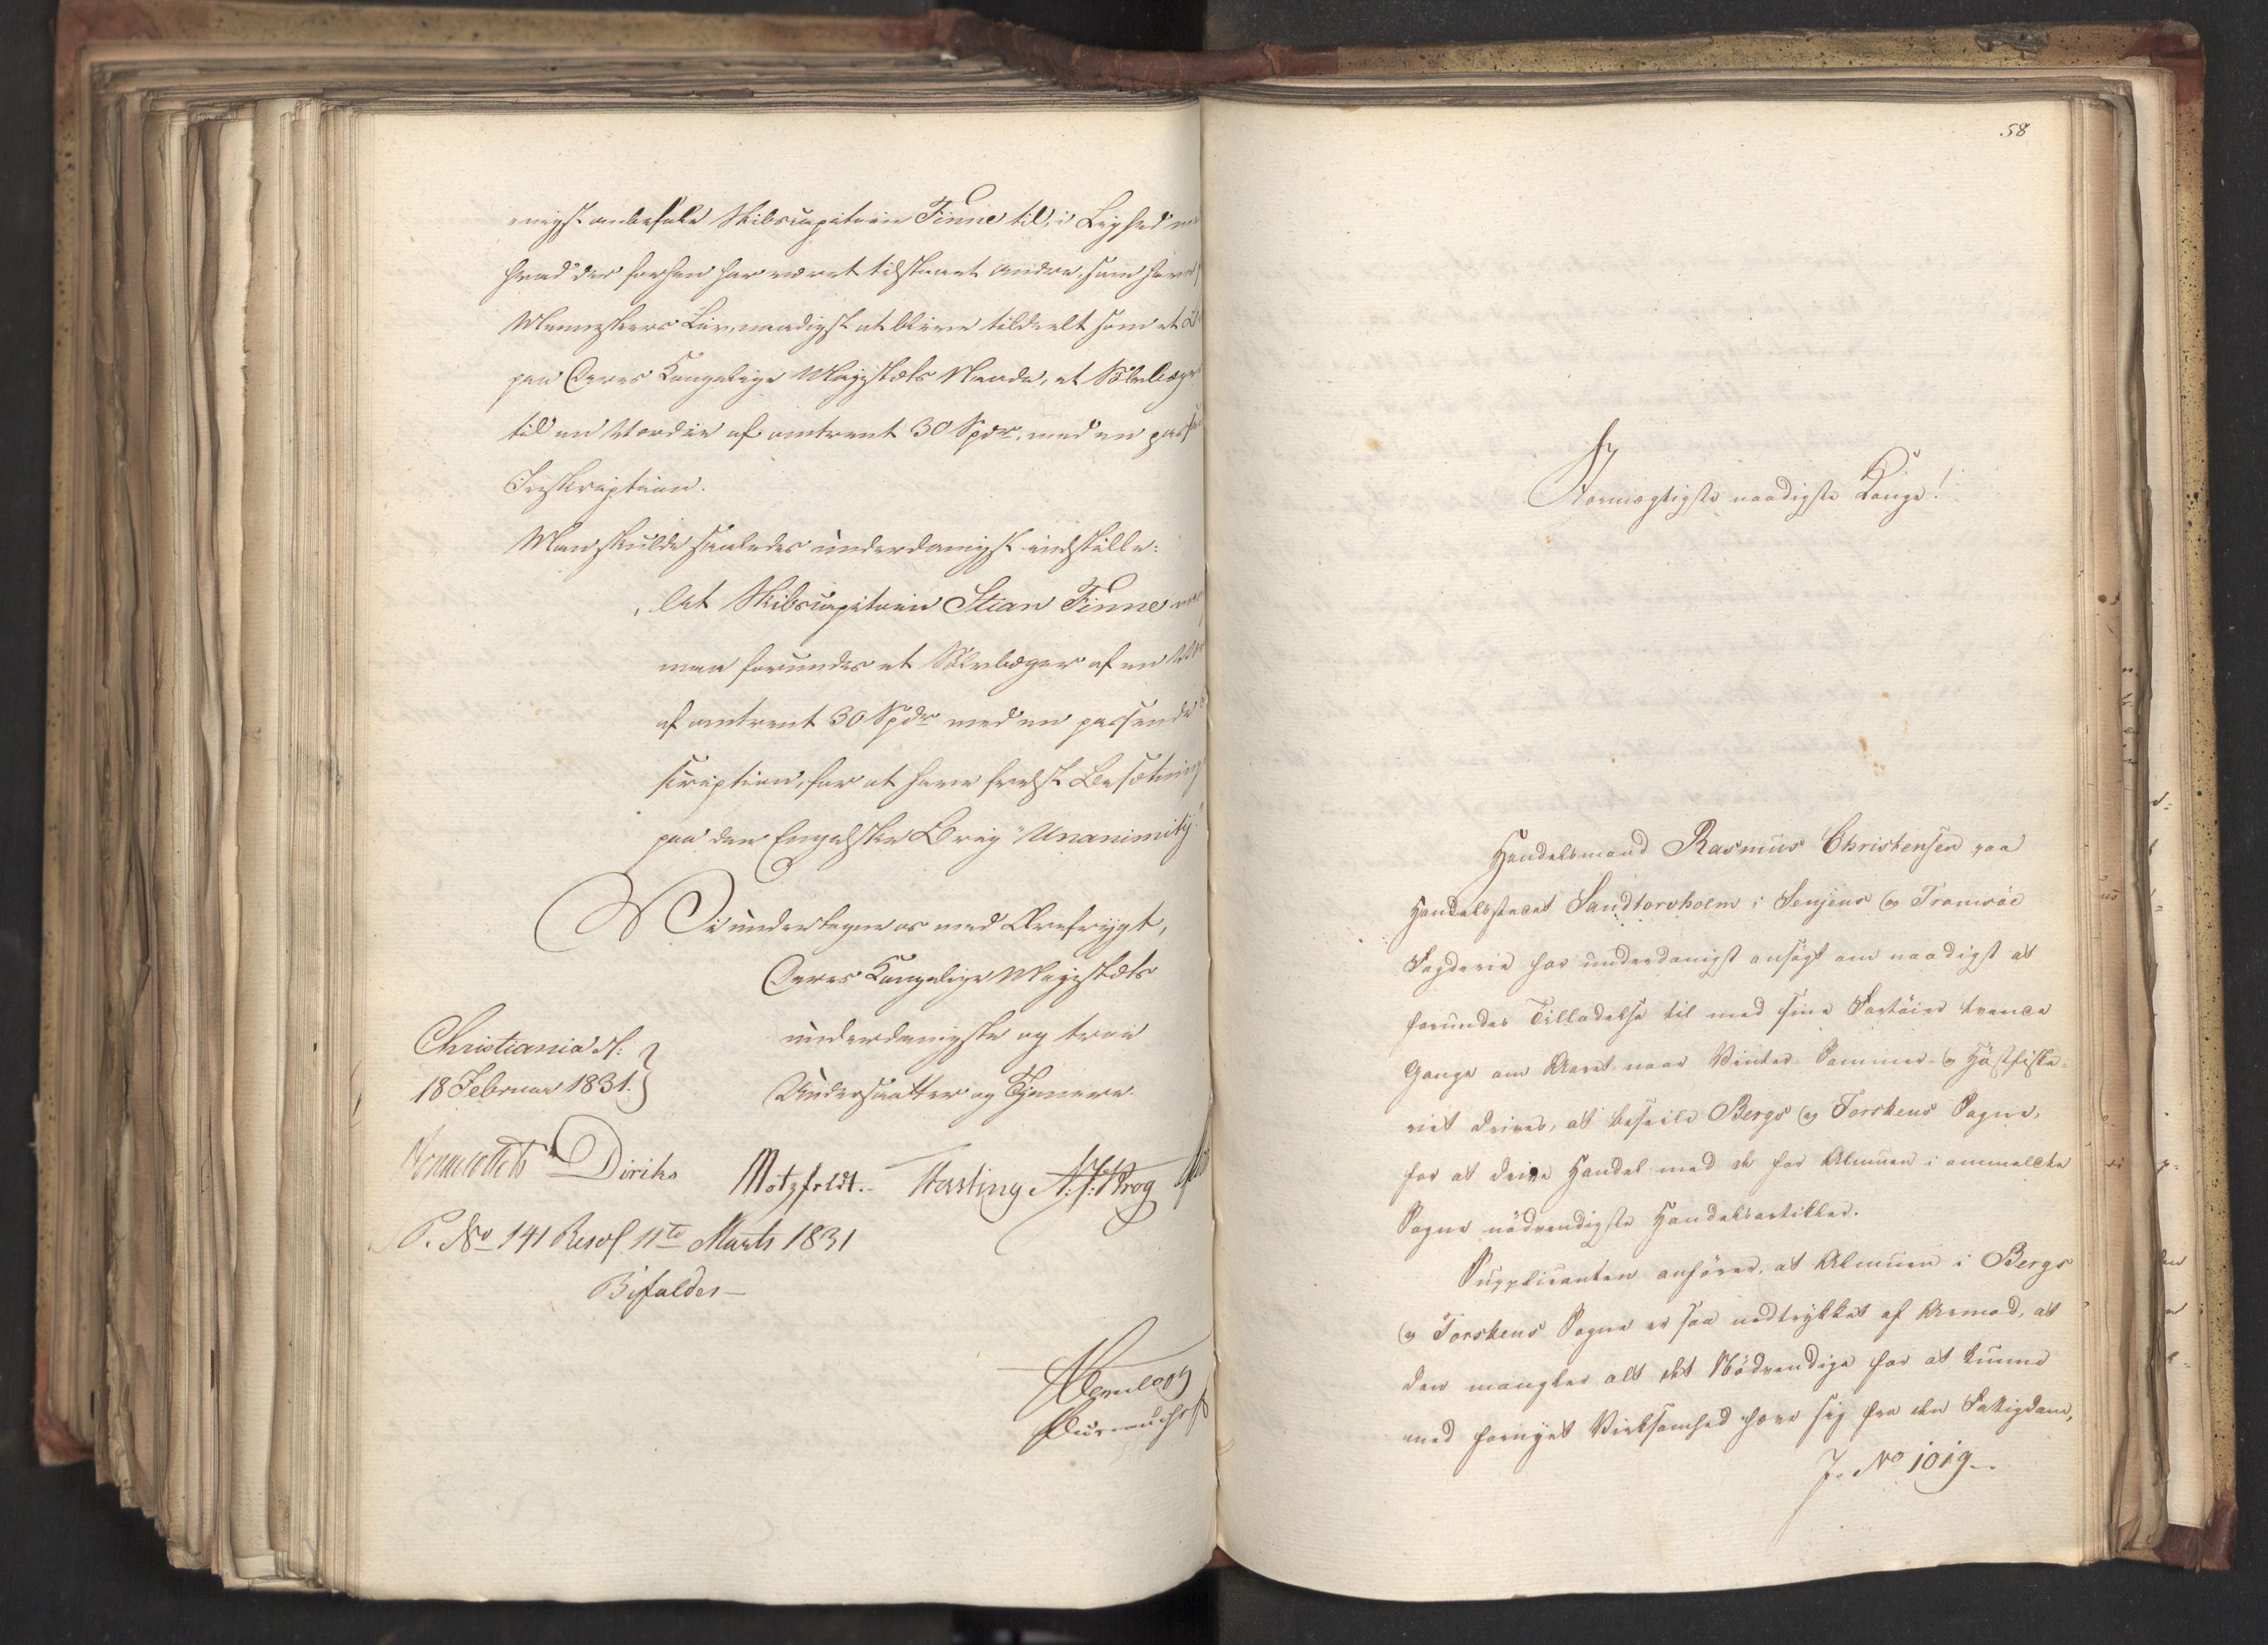 enigst anbefale Skibscapitain Finne til, i Lighed
hvad der forhen har været tilstaaet Andre, som have
Menneskers Liv, naadigst at blive tildeelt som et
paa Deres Kongelige Majestæts Naade, et Sølvbæger
til en Værdie af omtrent 30 Spdr, med en
Inskription.
Man skulde saaledes underdanigst indstille:
"At Skibscapitain Stian Finne
maa forundes et Sølvbæger af en
af omtrent 30 Spdr med en passende
scription, for at have frelst Besætning
paa den Engelske Brig "Unanimity."
Vi undertegne os med Ærefrygt,
Deres Kongelige Majestæts
underdanigste og troe
Undersaatter og Tjenere.
Christiania d:
18 Februar 1831.
Diriks Motzfeldt. Fasting Krog
P. No 141 Resol 11te Marts 1831
Bifaldes
58
Stormægtigste naadigste Konge!
Handelsmand Rasmus Christensen paa
Handelsstedet Sandtorvholm i Senjens og Tromsøe
Fogderie har underdanigst ansøgt om naadigst at
forundes Tilladelse til med sine Fartøier trende
Gange om Aaret, naar Vinter- Sommer- og Høstfiske-
riet drives, at beseile Bergs og Torskens Sogne,
for at drive Handel med de for Almuen i ommeldte
Sogne nødvendigste Handelsartikler.
Supplicanten anfører, at Almuen i Bergs
og Torskens Sogne er saa nedtrykket af Armod, at
den mangler alt det Nødvendige for at kunne
med fornyet Virksomhed hæve sig fra den Fattigdom,
J. No 1019